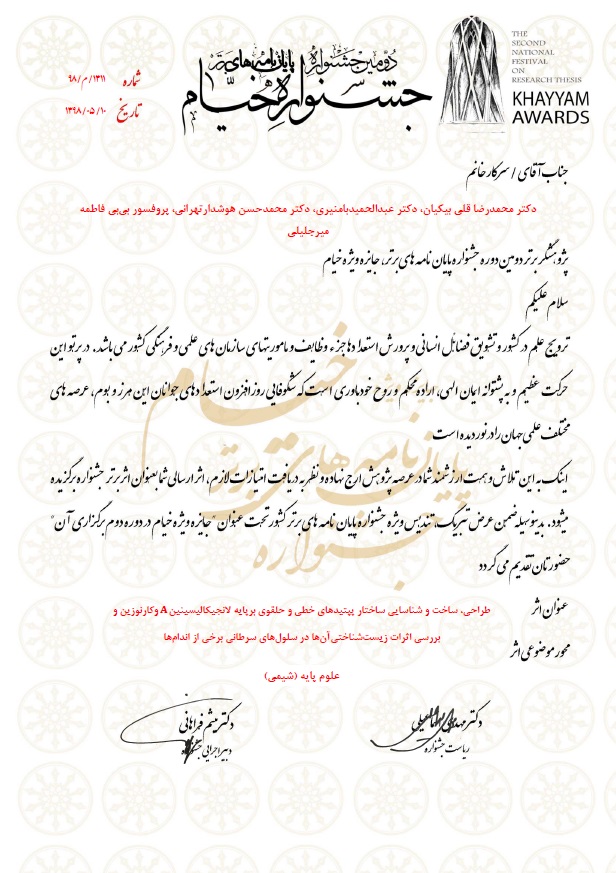 THE
SECOND
NATIONAL
FESTIVAL
ON
RESEARCH THESIS
KHAYYAM
AWARDS
دومین جشنواره پایان نامه های برتر
جشنواره خیام
شماره ۱۳۱۱/م/۹۸
تاریخ ۱۳۹۸/۰۵/۱۰
جناب آقای / سرکار خانم
دکتر محمدرضا قلی بیکیان، دکتر عبدالحمیدبامنیری، دکتر محمدحسن هوشدارتهرانی، پروفسور بی‌بی فاطمه
میرجلیلی
پژوهشگر برتر دومین دوره جشنواره پایان نامه های برتر، جایزه ویژه خیام
سلام علیکم
ترویج علم در کشور و تشویق فضائل انسانی و پرورش استعدادها جزء وظایف و ماموریتهای سازمان های علمی و فرهنگی کشور می باشد. در پرتو این
حرکت عظیم و به پشتوانه ایمان الهی، اراده محکم و روح خودباوری است که شکوفایی روز افزون استعدادهای جوانان این مرز و بوم، عرصه های
مختلف علمی جهان را در نوردیده است
اینک به این تلاش و همت ارزشمند شما در عرصه پژوهش ارج نهاده و نظر به دریافت امتیازات لازم، اثر ارسالی شما بعنوان اثر برتر جشنواره برگزیده
میشود. بدینوسیله ضمن عرض تبریک، تندیس ویژه جشنواره پایان نامه های برتر کشور تحت عنوان "جایزه ویژه خیام در دوره دوم برگزاری آن"
حضورتان تقدیم می گردد
عنوان اثر طراحی، ساخت و شناسایی ساختار پپتیدهای خطی و حلقوی برپایه لانجیکالیسینین A وکارنوزین و
بررسی اثرات زیست‌شناختی آن‌ها در سلول‌های سرطانی برخی از اندام‌ها
محور موضوعی اثر
علوم پایه (شیمی)
دکتر میثم فراهانی
دبیر اجرایی جشنواره
دکتر مهدی
ریاست جشنواره
جشنواره
پایان نامه های برتر
خیام